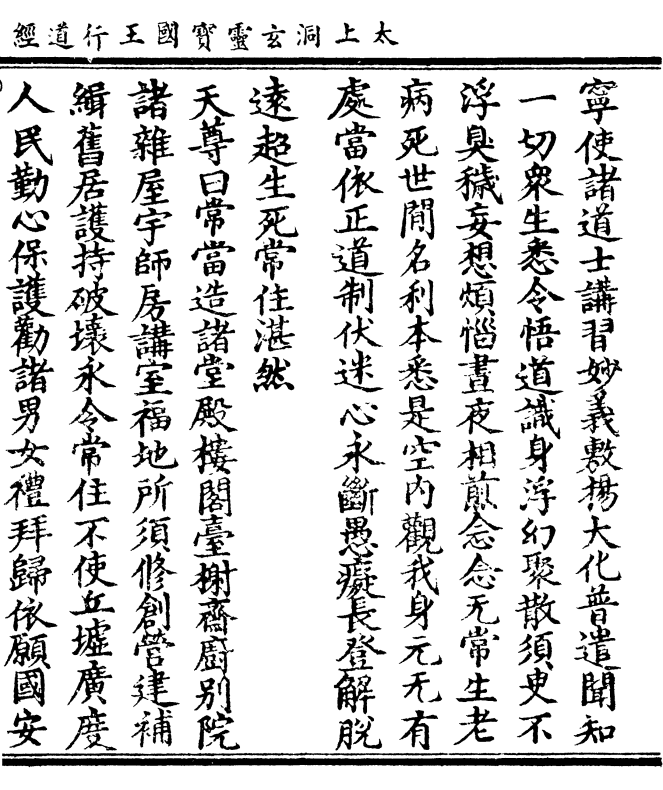 太上洞玄靈寶國王行道經
寧使諸道士講習妙義敷揚大化普遣聞知
一切衆生悉令悟道識身浮幻聚散須臾不
浮臭穢妄想煩惱晝夜相煎念念无常生老
病死世間名利本悉是空內觀我身元无有
處當依正道制伏迷心永斷愚癡長登解脫
遠超生死常住湛然
天尊曰常當造諸堂殿樓閣臺榭齋廚別院
諸雜屋宇師房講室福地所須修創營建補
緝舊居護持破壞永令常住不使丘墟廣度
人民勤心保護勸諸男女禮拜歸依願國安